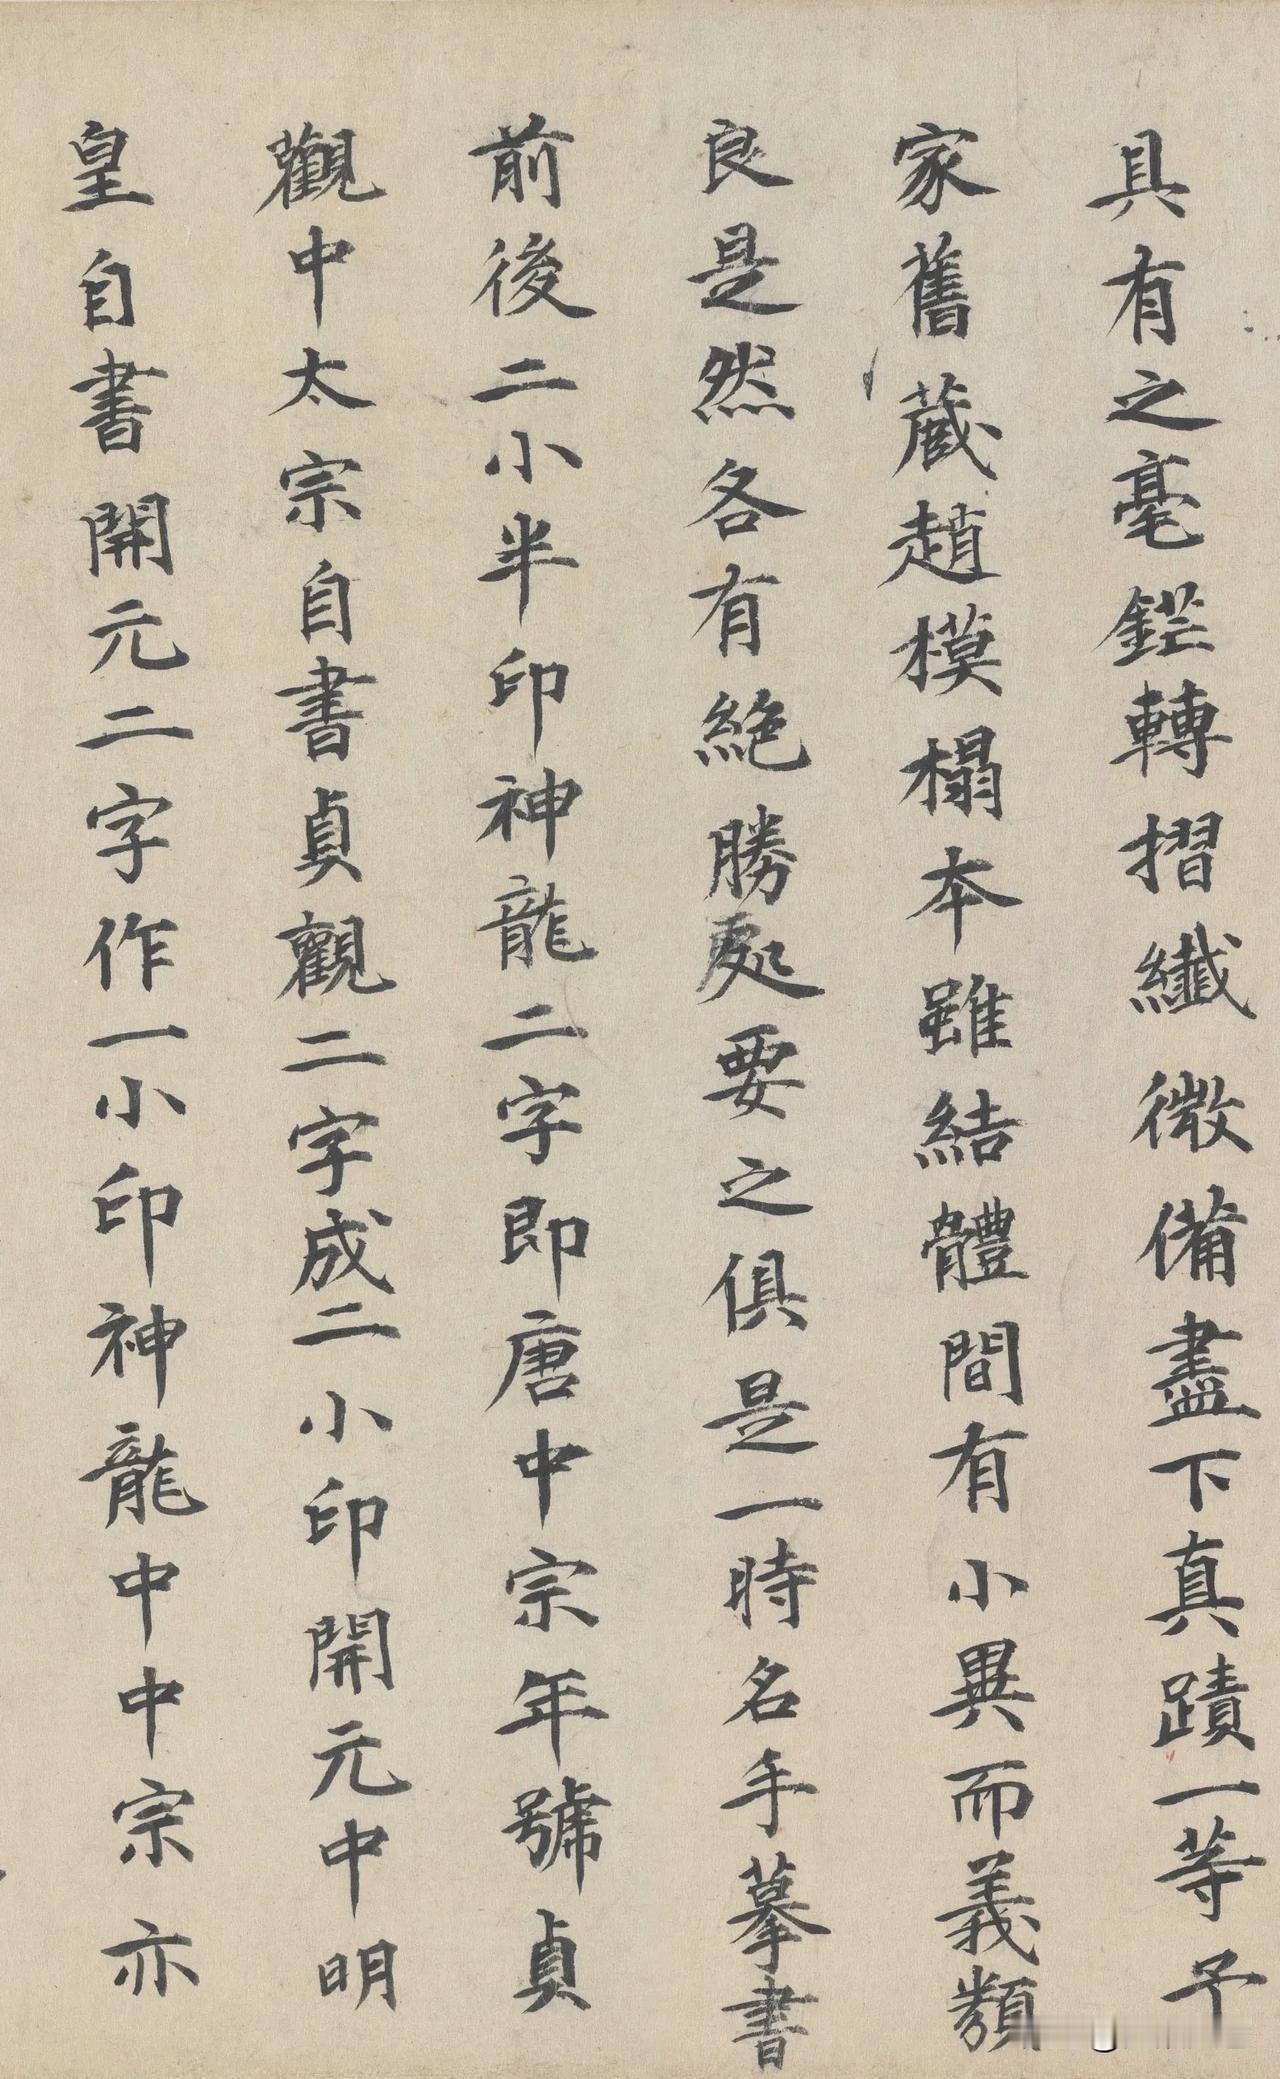 具有之毫鋩轉摺纖微備盡下真蹟一等予
家舊藏趙模榻本雖結體間有小異而義類
良是然各有絕勝處要之俱是一時名手摹書
前後二小半印神龍二字即唐中宗年號貞
觀中太宗自書貞觀二字成二小印開元中明
皇自書開元二字作一小印神龍中中宗亦